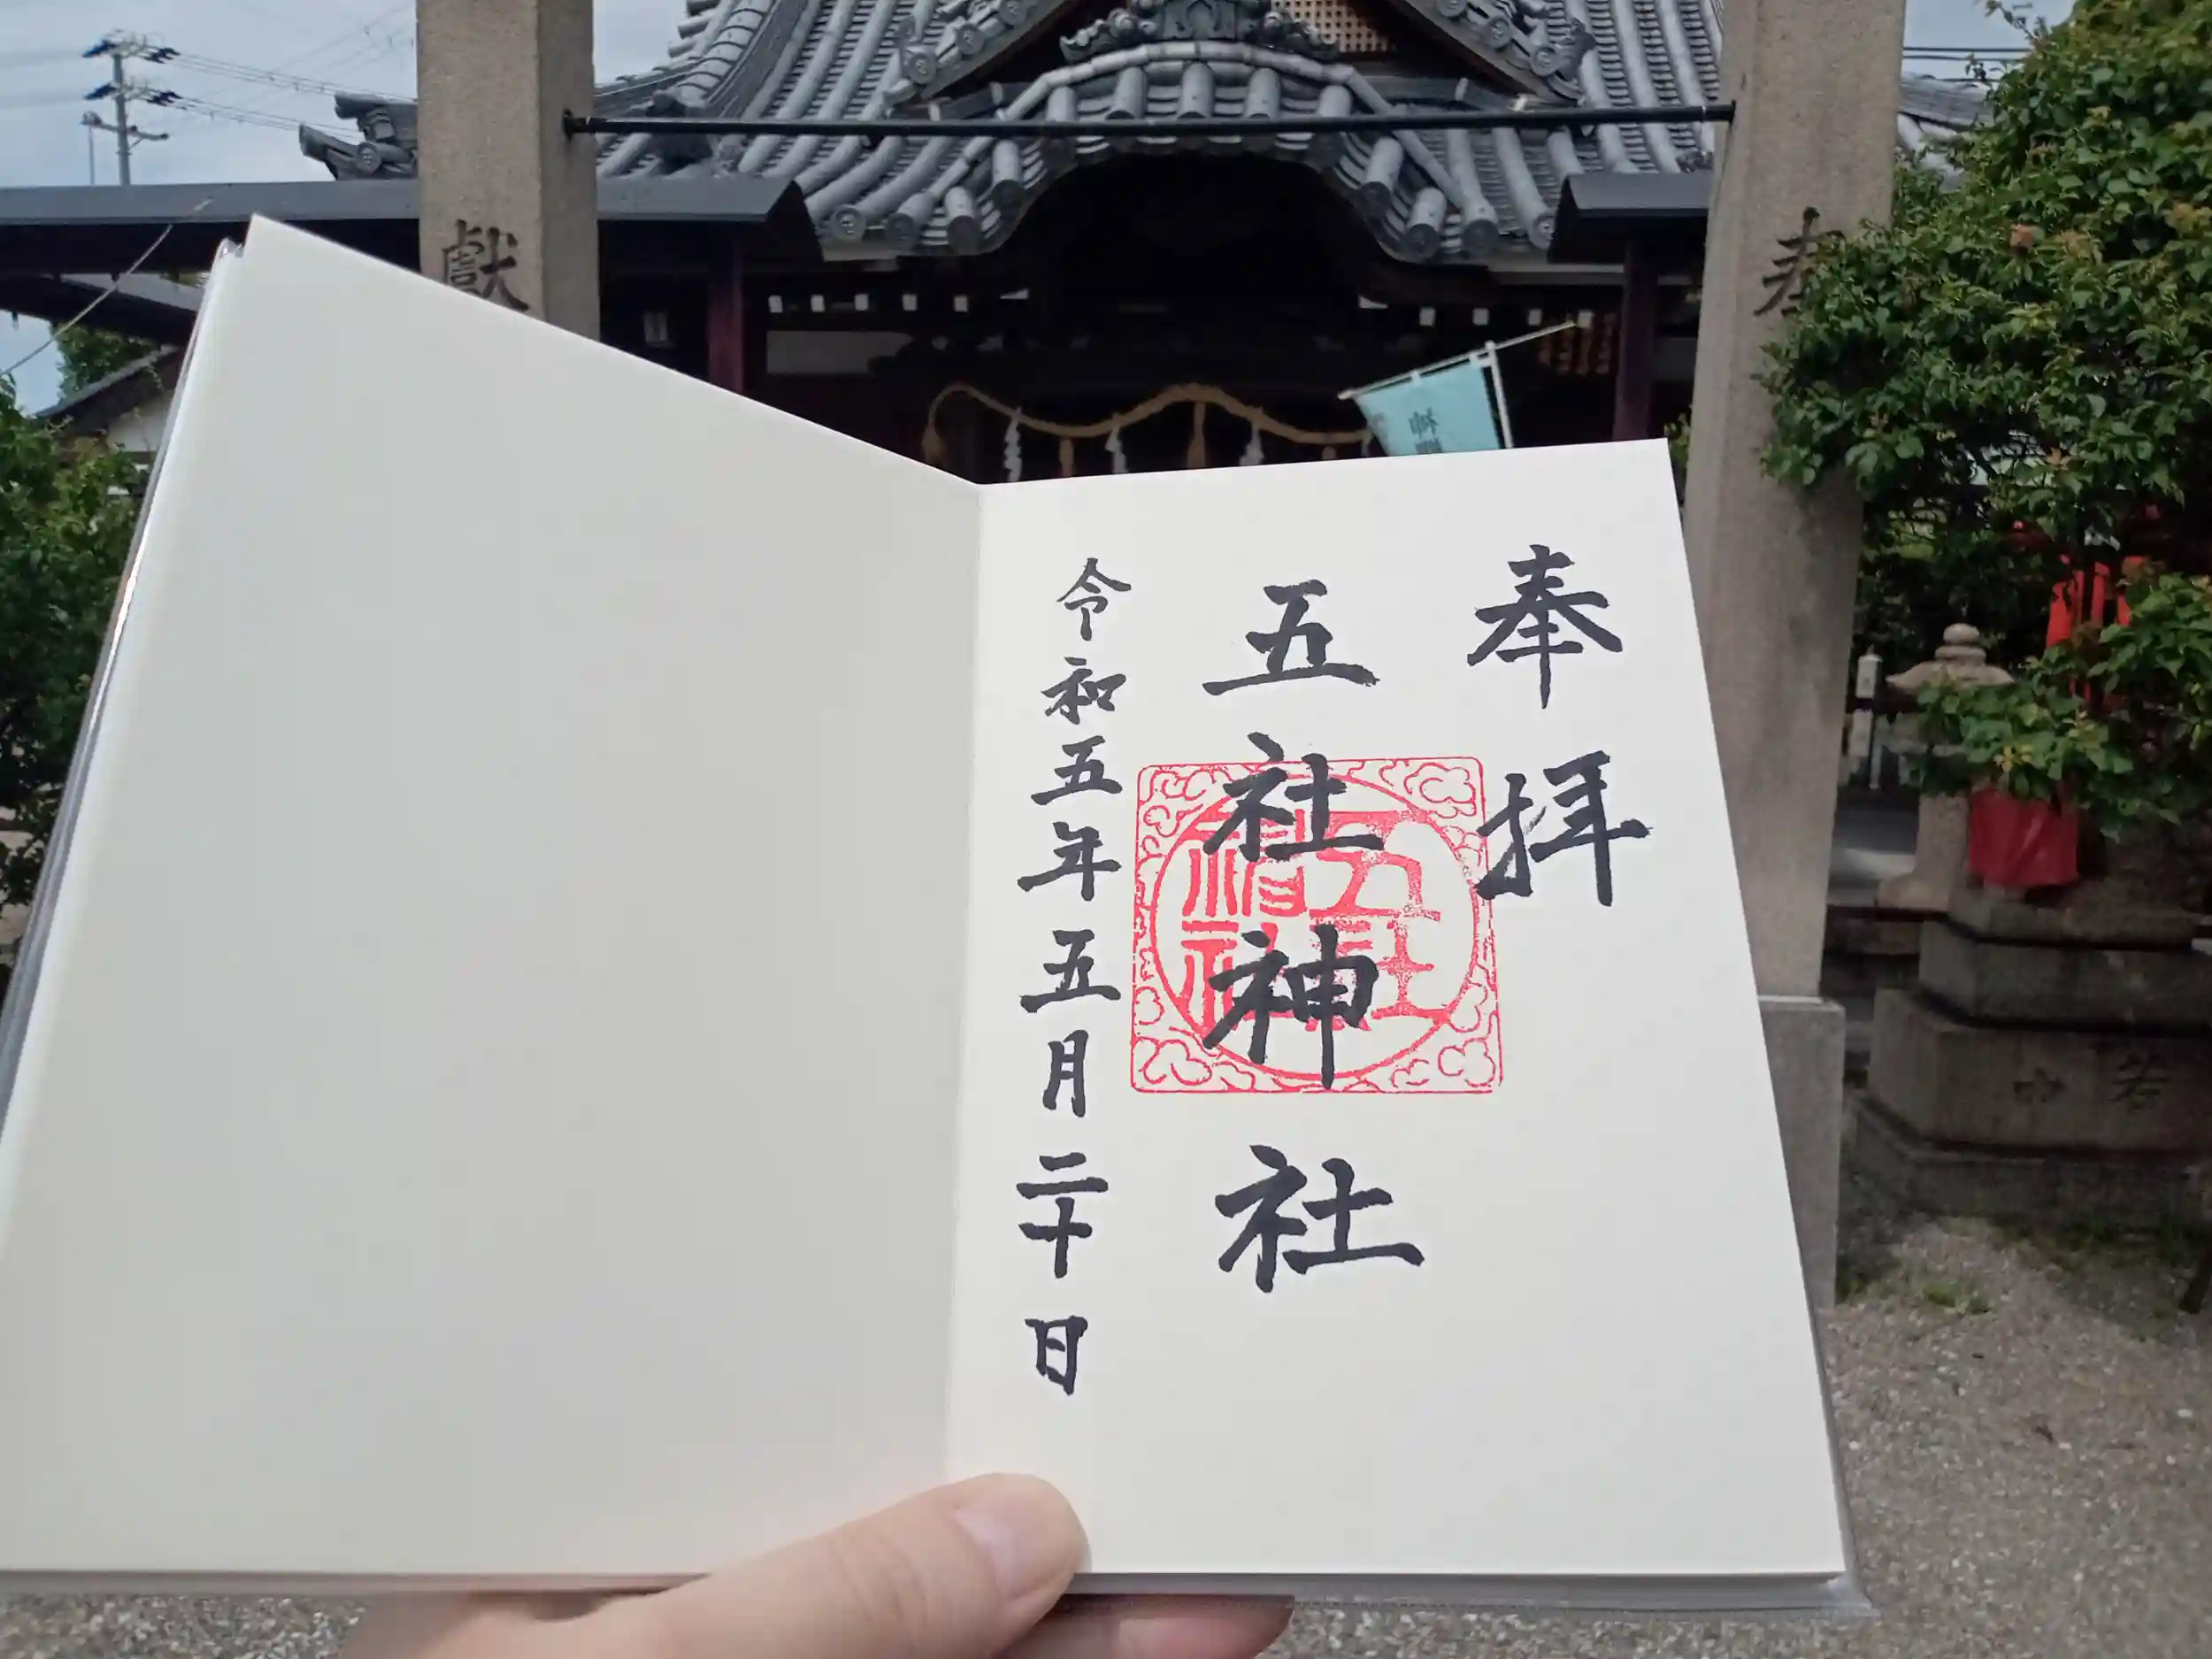 奉拝
五社神社
令和五年五月二十日
五社神社
奉
獻
神
若
中